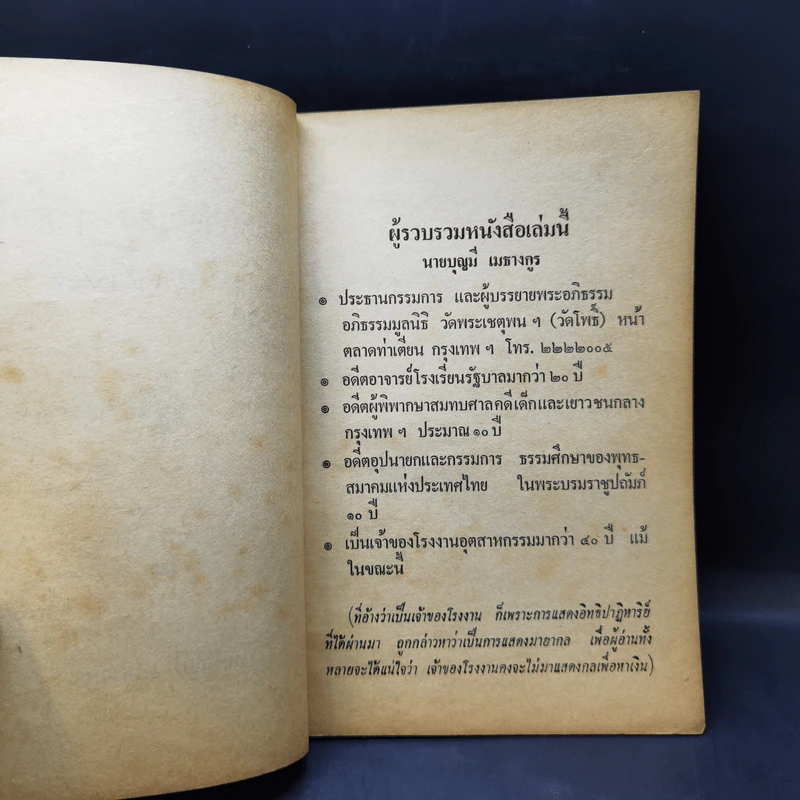 ผู้รวบรวมหนังสือเล่มนี้
นายบุญมี เมธางกูร
๑ ประธานกรรมการ และผู้บรรยายพระอภิธรรม
อภิธรรมมูลนิธิ วัดพระเชตุพน ๆ (วัดโพธิ์) หน้า
ตลาดท่าเตียน กรุงเทพ ๆ โทร. ๒๒๒๒๐๐๕
๑ อดีตอาจารย์โรงเรียนรัฐบาลมากว่า ๒๐ ปี
๑ อดีตผู้พิพากษาสมทบศาลคดีเด็กและเยาวชนกลาง
กรุงเทพ ๆ ประมาณ ๑๐ ปี
๑ อดีตอุปนายกและกรรมการ ธรรมศึกษาของพุทธ-
สมาคมแห่งประเทศไทย ในพระบรมราชูปถัมภ์
๑๐ ปี
๑ เป็นเจ้าของโรงงานอุตสาหกรรมมากว่า ๔๐ ปี แม้
ในขณะนี้
(ที่อ้างว่าเป็นเจ้าของโรงงาน ก็เพราะการแสดงอิทธิปาฏิหาริย์
ที่ได้ผ่านมา ถูกกล่าวหาว่าเป็นการแสดงมายากล เพื่อผู้อ่านทั้ง
หลายจะได้แน่ใจว่า เจ้าของโรงงานคงจะไม่มาแสดงกลเพื่อหาเงิน)